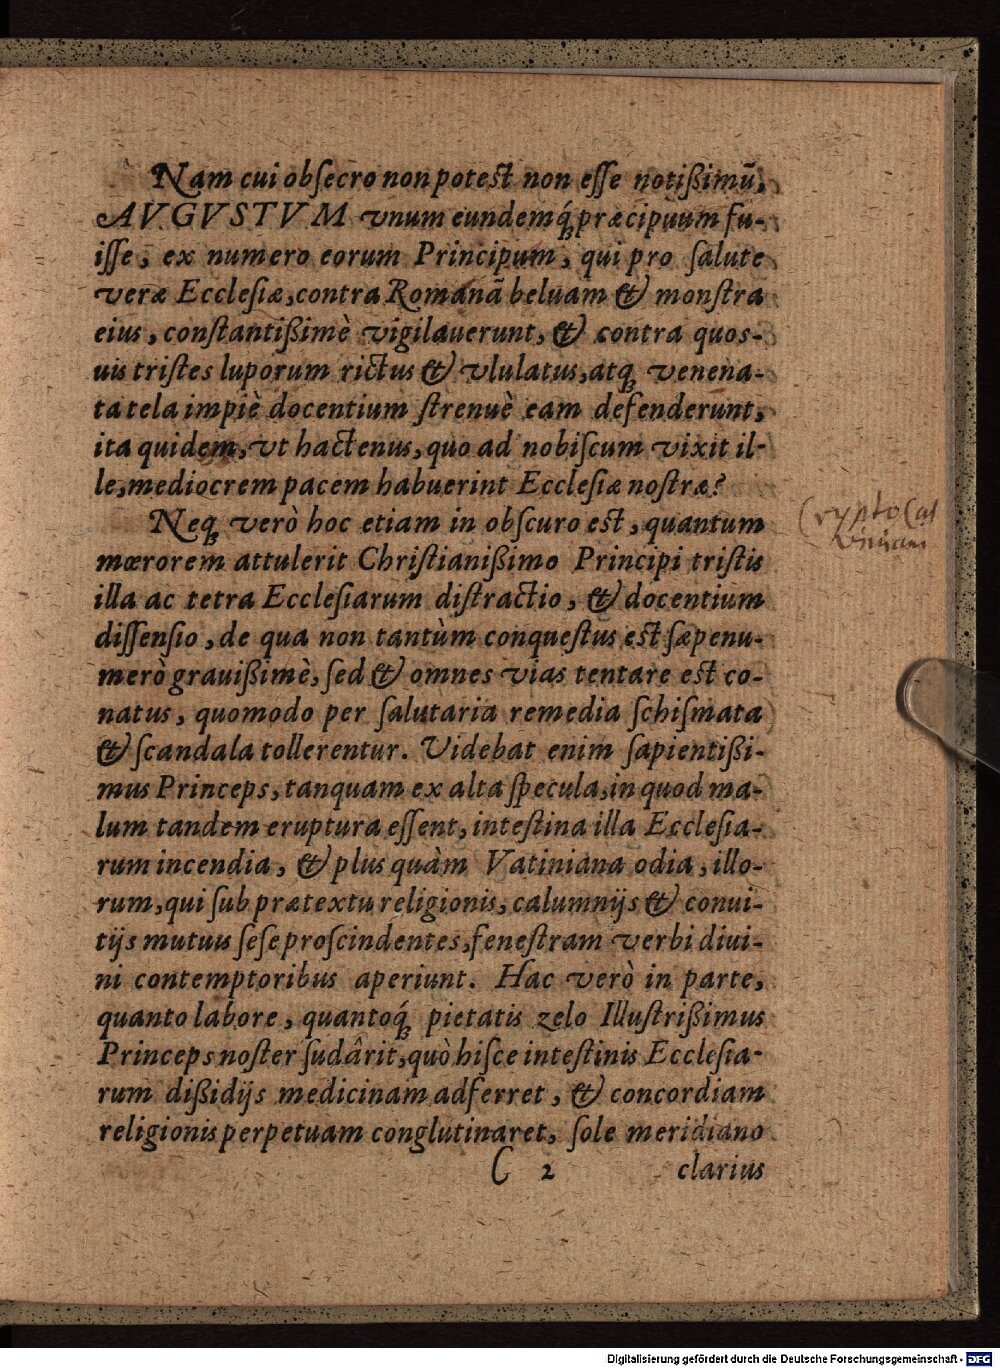 Nam cui obſecro non poteſt non eſſe notißimū,
AVGVSTVM vnum eundemq́; præcipuum fu-
iſſe, ex numero eorum Principum, qui pro ſalute
veræ Eccleſiæ, contra Romanā beluam & monſtra
eius, conſtantißimè vigilauerunt, & contra quos-
uis triſtes luporum rictus & vlulatus, atq; venena-
ta tela impiè docentium ſtrenuè eam defenderunt,
ita quidem, vt hactenus, quo ad nobiſcum vixit il-
le, mediocrem pacem habuerint Eccleſiæ noſtræ?
Neq; verò hoc etiam in obſcuro eſt, quantum
mœrorem attulerit Chriſtianißimo Principi triſtis
illa ac tetra Eccleſiarum diſtractio, & docentium
diſſenſio, de qua non tantùm conqueſtus eſt ſæpenu-
merò grauißimè, ſed & omnes vias tentare eſt co-
natus, quomodo per ſalutaria remedia ſchiſmata
& ſcandala tollerentur. Videbat enim ſapientißi-
mus Princeps, tanquam ex alta ſpecula, in quod ma-
lum tandem eruptura eſſent, inteſtina illa Eccleſia-
rum incendia, & plus quàm Vatiniana odia, illo-
rum, qui ſub prætextu religionis, calumnijs & conui-
tijs mutuis ſeſe proſcindentes, feneſtram verbi diui-
ni contemptoribus aperiunt. Hac verò in parte,
quanto labore, quantoq́; pietatis zelo Illuſtrißimus
Princeps noſter ſudârit, quò hiſce inteſtinis Eccleſia-
rum dißidijs medicinam adferret, & concordiam
religionis perpetuam conglutinaret, ſole meridiano
C 2 clarius
Crypto Cal
viniani
Digitalisierung gefördert durch die Deutsche Forschungsgemeinschaft - DFG